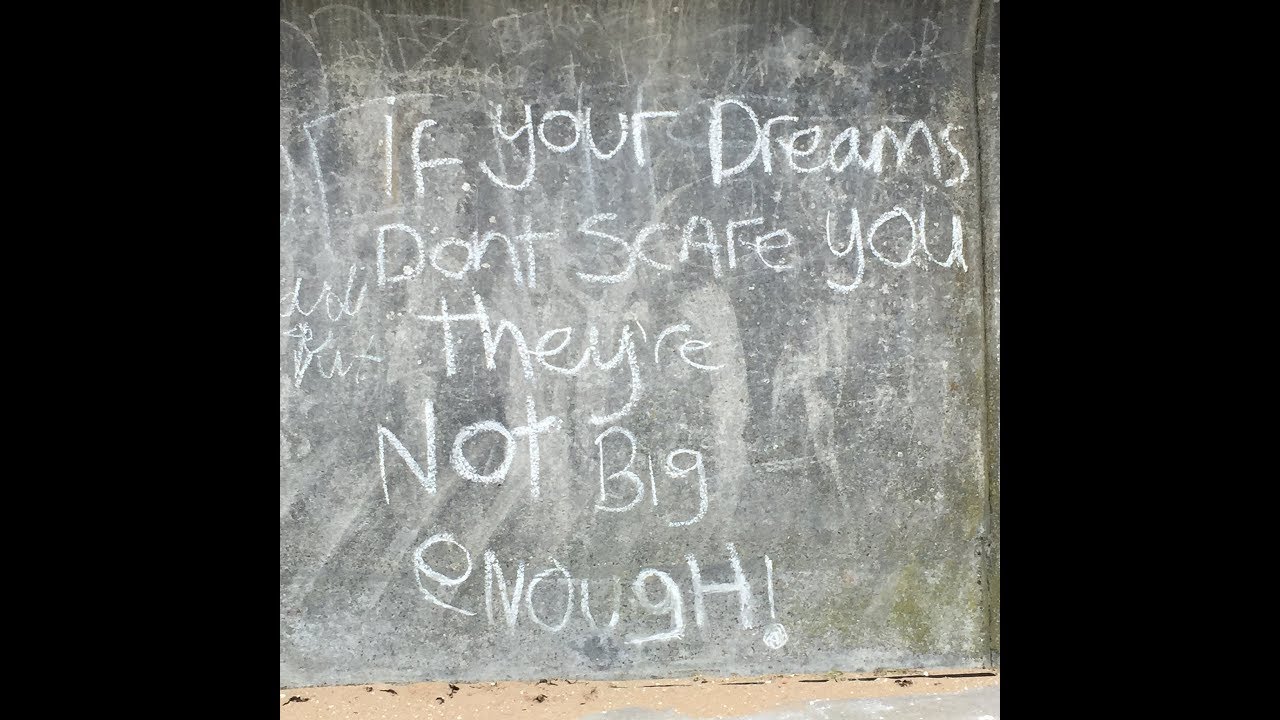 If your Dreams
Dont Scare you
they're
Not Big
enough!